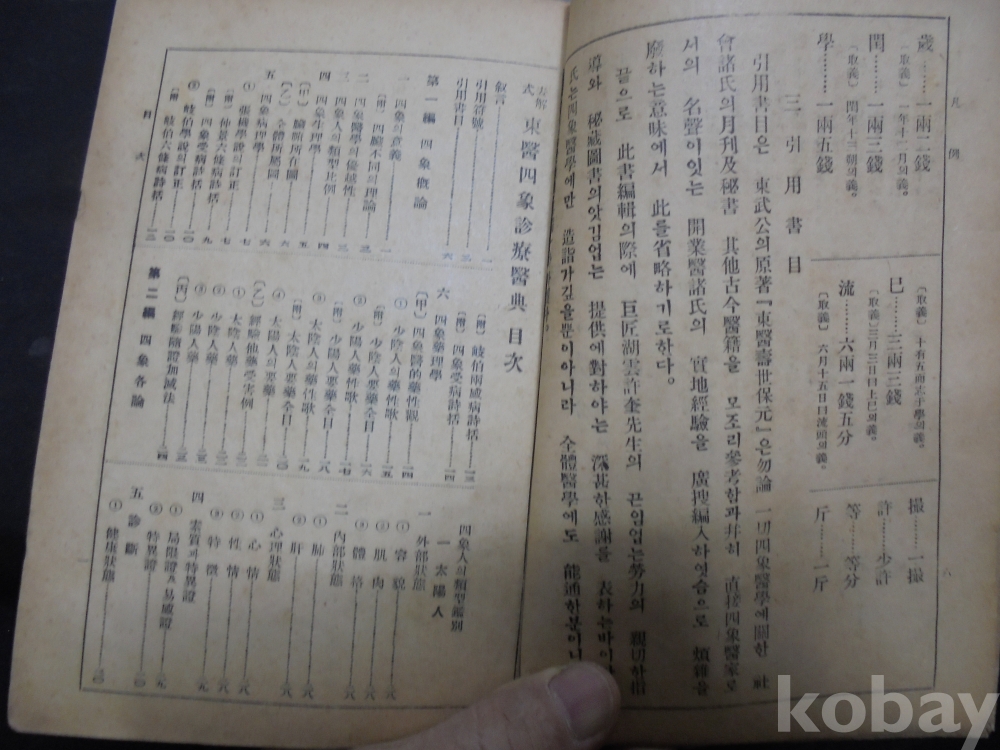 凡例
歲……一兩二錢
〔取義〕 一年十二月의義。
閏……一兩三錢
〔取義〕 閏年十三朔의義。
學……一兩五錢
〔取義〕 十有五而志于學의義。
巳……三兩三錢
〔取義〕 三月三日曰上巳의義。
流……六兩一錢五分
〔取義〕 六月十五日曰流頭의義。
撮……一撮
許……少許
等……等分
斤……一斤
三 引用書目
引用書目은 東武公의原著『東醫壽世保元』은勿論 一切四象醫學에關한 社
會諸氏의月刊及秘書 其他古今醫籍을 모조리參考함과幷히 直接四象醫家로
서의 名聲이잇는 開業醫諸氏의 實地經驗을 廣搜編入하엿슴으로 煩雜을
廢하는意味에서 此를省略하기로한다。
끝으로 此書編輯의際에 巨匠湖雲許奎先生의 끈임업는勞力의 親切한指
導와 秘藏圖書의앗김업는 提供에對하야는 深甚한感謝를 表하는바이
氏는四象醫學에만 造詣가깁을뿐이아니라 全體醫學에도 能通한분이니
東醫四象診療醫典 目次
叙言……一
引用符號
引用書目……六
第一編 四象槪論
一 四象의意義……一
〔附〕 四臟不同의理論
二 四象醫學의優越性……三
三 四象人의類型比例……三
四 四象生理學……四
〔甲〕 臟腑所在圖……五
〔乙〕 全體所屬圖……六
五 四象病理學……六
① 張機學說의訂正……七
〔附〕 仲景六條病詩括……七
〔附〕 四象受病詩括……九
② 岐伯學說의訂正……一〇
〔附〕 岐伯六條病詩括……一二
目次
〔附〕 岐伯兩感病詩括……一三
〔附〕 四象受病詩括……一四
六 四象藥理學
〔甲〕 四象醫的藥性觀……一四
① 少陰人藥性歌……一五
〔附〕 少陰人要藥全目……一六
② 少陽人藥性歌……一七
〔附〕 少陽人要藥全目……一八
③ 太陰人의藥性歌……一九
〔附〕 太陰人要藥全目……二〇
④ 太陽人의要藥
〔乙〕 經驗他藥受害例
① 太陰人藥
② 少陰人藥
③ 少陽人藥
〔丙〕 經驗隨證加減法……二四
第二編 四象各論
四象人의類型鑑別
一 太陽人
一 外部狀態
① 容貌……二八
② 肌肉……二八
③ 體格……二八
二 內部狀態
① 肺……二八
② 肝……二八
三 心理狀態
① 心情……二八
② 性情……二八
③ 特徵
四 素質과特異證
① 易感證
② 特異證
五 診斷
① 健康狀態